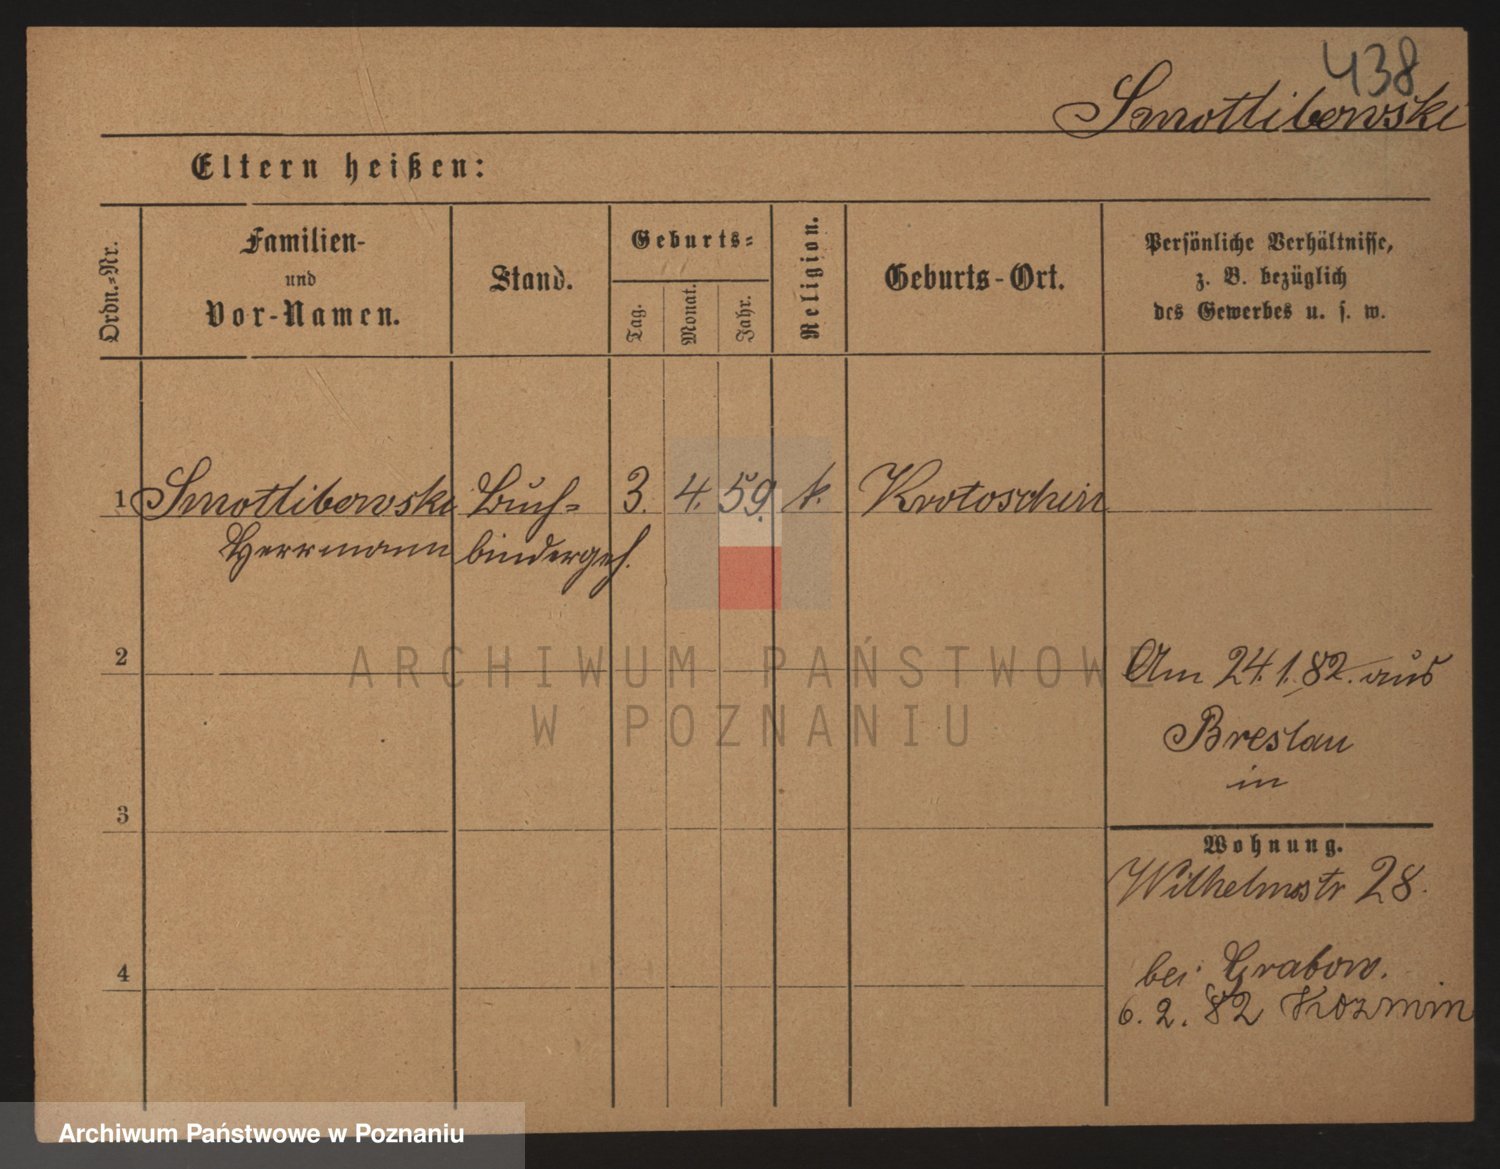 438
Smotlibowski
Eltern heißen:
Ordn.-Nr.
Familien-
und
Vor-Namen.
Stand.
Geburts-
Tag.
Monat.
Jahr.
Religion.
Geburts-Ort.
Persönliche Verhältnisse,
z. B. bezüglich
des Gewerbes u. s. w.
1 Smotlibowski Buch- 3. 4. 59. k. Krotoschin
Herrmann bindergeh.
2
Am 24.1.82. aus
Breslau
in
3
Wohnung.
Wilhelmstr 28.
4
bei Grabow.
6. 2. 82 Kozmin
ARCHIWUM PAŃSTWOWE
W POZNANIU
Archiwum Państwowe w Poznaniu